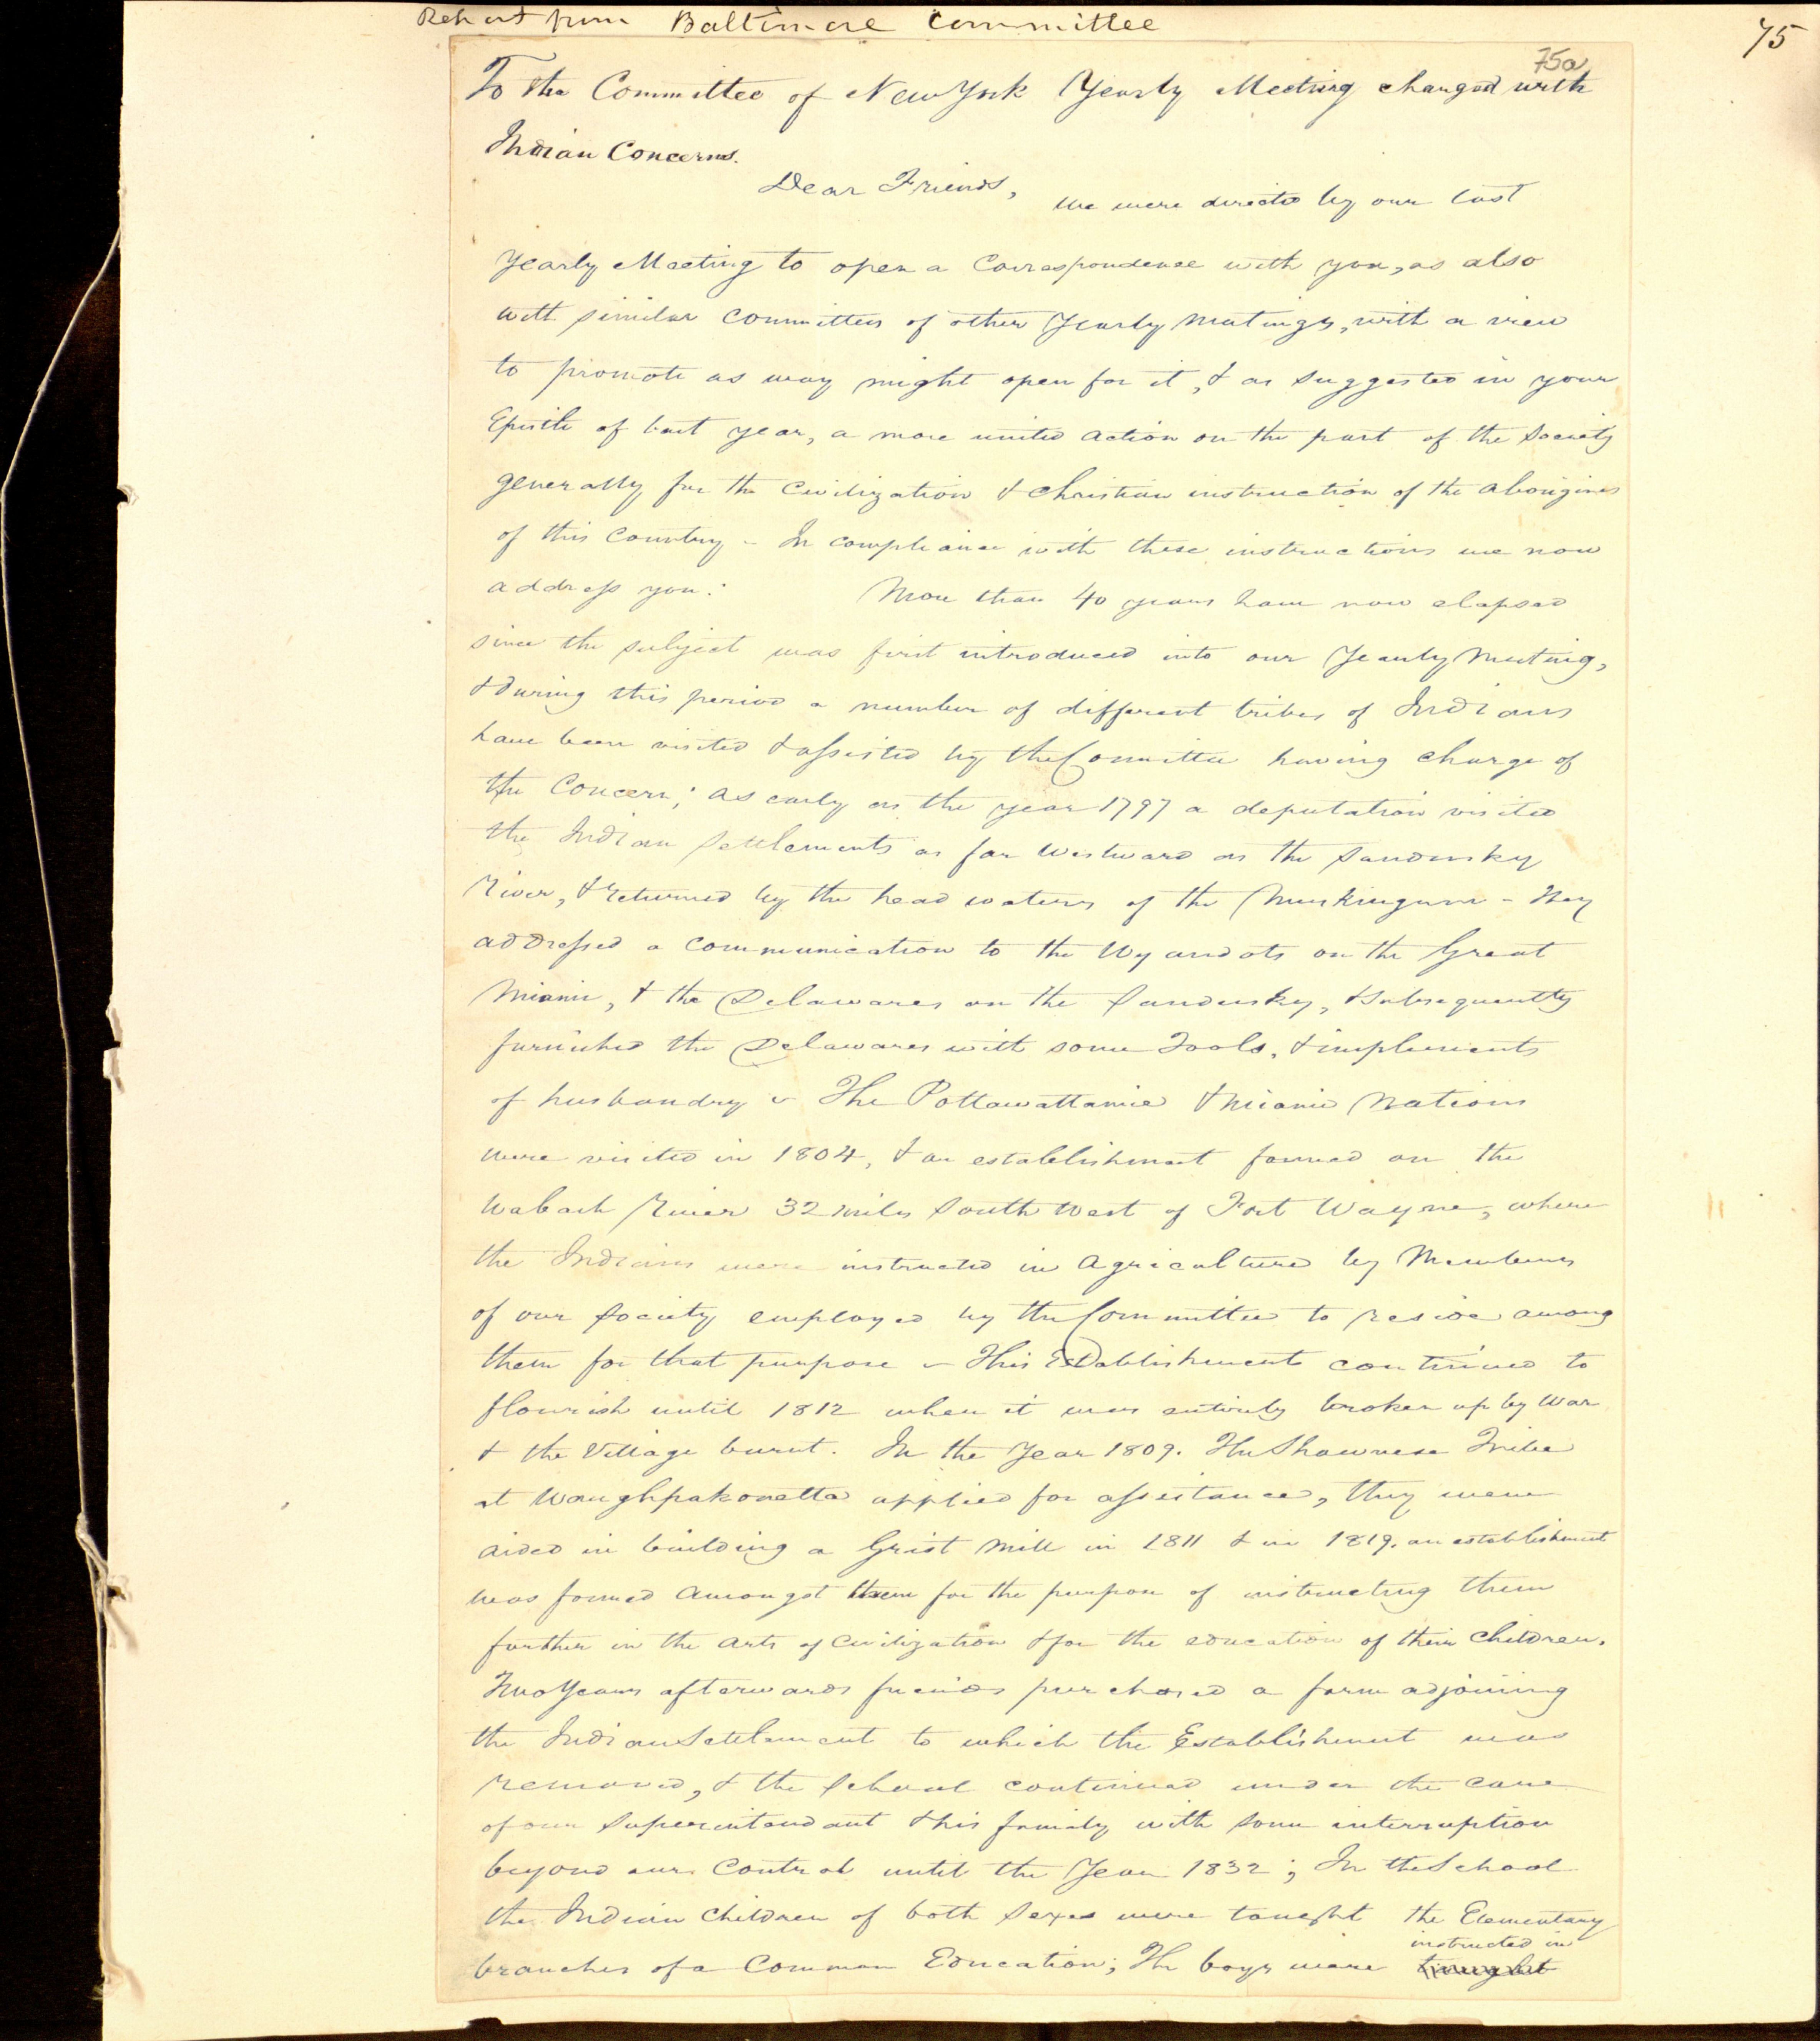 Report from Baltimore Committee
75
75a
To the Committee of New York Yearly Meeting charged with
Indian Concerns.
Dear Friends, We were directed by our last
Yearly Meeting to open a Correspondence with you, as also
with similar Committees of other Yearly Meetings, with a view
to promote as way might open for it, & as suggested in your
Epistle of last year, a more united action on the part of the Society
generally for the Civilization & Christian instruction of the Aborigines
of this Country - In compliance with these instructions we now
address you. More than 40 years have now elapsed
since the subject was first introduced into our Yearly Meeting,
& during this period a number of different tribes of Indians
have been visited & assisted by the Committee having charge of
the Concern; as early as the year 1797 a deputation visited
the Indian Settlements as far Westward as the Sandusky
River, & returned by the head waters of the Muskingum - They
addressed a communication to the Wyandots on the Great
Miami, & the Delawares on the Sandusky, & subsequently
furnished the Delawares with some Tools, & implements
of husbandry - The Pottawattamie & Miamie Nations
were visited in 1804, & an establishment formed on the
Wabash River 32 miles South West of Fort Wayne, where
the Indians were instructed in Agriculture by Members
of our Society employed by the Committee to reside among
them for that purpose - This Establishment continued to
flourish until 1812 when it was entirely broken up by War
& the Village burnt. In the Year 1809. The Shawnese Tribe
at Waughpakonetta applied for assistance, they were
aided in building a Grist Mill in 1811 & in 1819. an establishment
was formed amongst them for the purpose of instructing them
further in the arts of Civilization & for the education of their Children.
Two Years afterwards friends purchased a farm adjoining
the Indian Settlement to which the Establishment was
removed, & the School continued under the care
of our Superintendant & his family with some interruption
beyond our Control until the Year 1832; In the School
the Indian Children of both Sexes were taught the Elementary
instructed in
branches of a Common Education; The boys were taught